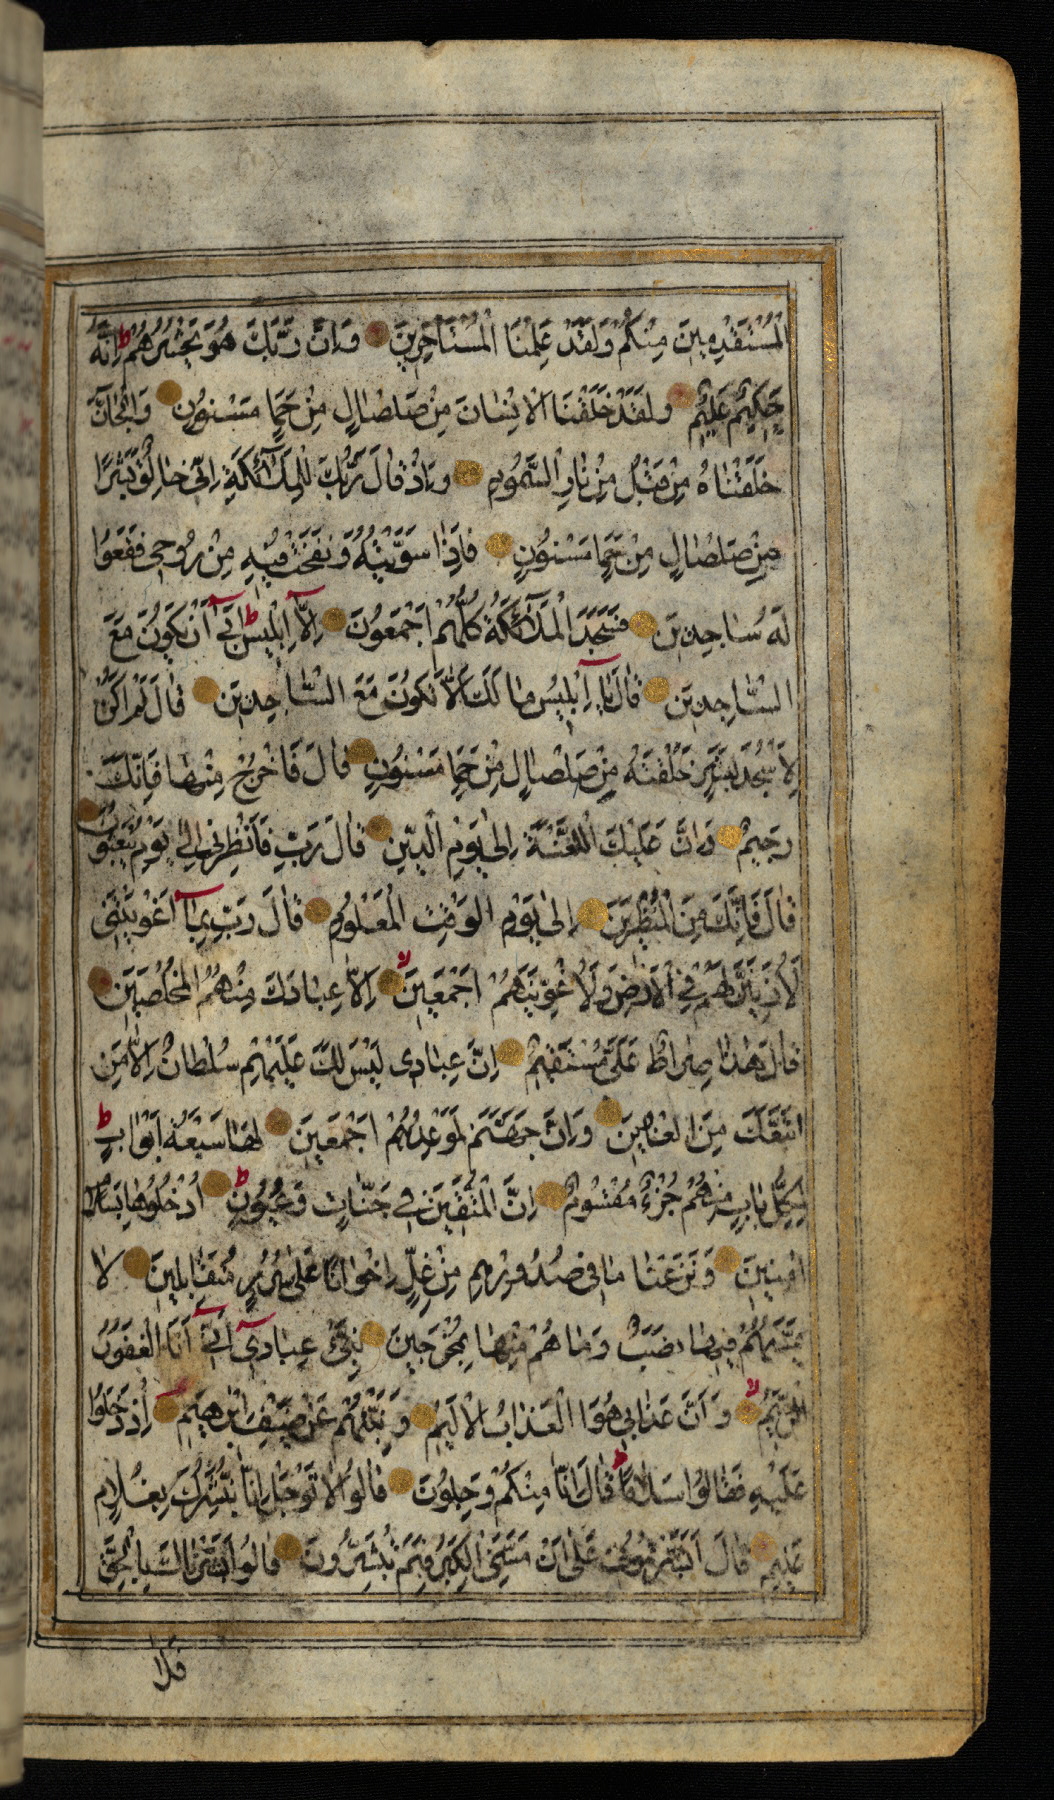 الْمُسْتَقْدِمِينَ مِنْكُمْ وَلَقَدْ عَلِمْنَا الْمُسْتَأْخِرِينَ وَإِنَّ رَبَّكَ هُوَ يَحْشُرُهُمْ ط إِنَّهُ
حَكِيمٌ عَلِيمٌ وَلَقَدْ خَلَقْنَا الْإِنْسَانَ مِنْ صَلْصَالٍ مِنْ حَمَإٍ مَسْنُونٍ وَالْجَانَّ
خَلَقْنَاهُ مِنْ قَبْلُ مِنْ نَارِ السَّمُومِ وَإِذْ قَالَ رَبُّكَ لِلْمَلَائِكَةِ إِنِّي خَالِقٌ بَشَرًا
مِنْ صَلْصَالٍ مِنْ حَمَإٍ مَسْنُونٍ فَإِذَا سَوَّيْتُهُ وَنَفَخْتُ فِيهِ مِنْ رُوحِي فَقَعُوا
لَهُ سَاجِدِينَ فَسَجَدَ الْمَلَائِكَةُ كُلُّهُمْ أَجْمَعُونَ إِلَّا إِبْلِيسَ ط أَبَى أَنْ يَكُونَ مَعَ
السَّاجِدِينَ قَالَ يَا إِبْلِيسُ مَا لَكَ أَلَّا تَكُونَ مَعَ السَّاجِدِينَ قَالَ لَمْ أَكُنْ
لِأَسْجُدَ لِبَشَرٍ خَلَقْتَهُ مِنْ صَلْصَالٍ مِنْ حَمَإٍ مَسْنُونٍ قَالَ فَاخْرُجْ مِنْهَا فَإِنَّكَ
رَجِيمٌ وَإِنَّ عَلَيْكَ اللَّعْنَةَ إِلَى يَوْمِ الدِّينِ قَالَ رَبِّ فَأَنْظِرْنِي إِلَى يَوْمِ يُبْعَثُونَ
قَالَ فَإِنَّكَ مِنَ الْمُنْظَرِينَ إِلَى يَوْمِ الْوَقْتِ الْمَعْلُومِ قَالَ رَبِّ بِمَا أَغْوَيْتَنِي
لَأُزَيِّنَنَّ لَهُمْ فِي الْأَرْضِ وَلَأُغْوِيَنَّهُمْ أَجْمَعِينَ لا إِلَّا عِبَادَكَ مِنْهُمُ الْمُخْلَصِينَ
قَالَ هَذَا صِرَاطٌ عَلَيَّ مُسْتَقِيمٌ إِنَّ عِبَادِي لَيْسَ لَكَ عَلَيْهِمْ سُلْطَانٌ إِلَّا مَنِ
اتَّبَعَكَ مِنَ الْغَاوِينَ وَإِنَّ جَهَنَّمَ لَمَوْعِدُهُمْ أَجْمَعِينَ لَهَا سَبْعَةُ أَبْوَابٍ ط
لِكُلِّ بَابٍ مِنْهُمْ جُزْءٌ مَقْسُومٌ إِنَّ الْمُتَّقِينَ فِي جَنَّاتٍ وَعُيُونٍ ط أُدْخُلُوهَا بِسَلَامٍ
آمِنِينَ وَنَزَعْنَا مَا فِي صُدُورِهِمْ مِنْ غِلٍّ إِخْوَانًا عَلَى سُرُرٍ مُتَقَابِلِينَ لَا
يَمَسُّهُمْ فِيهَا نَصَبٌ وَمَا هُمْ مِنْهَا بِمُخْرَجِينَ نَبِّئْ عِبَادِي أَنِّي أَنَا الْغَفُورُ
الرَّحِيمُ لا وَأَنَّ عَذَابِي هُوَ الْعَذَابُ الْأَلِيمُ وَنَبِّئْهُمْ عَنْ ضَيْفِ إِبْرَهِيمَ إِذْ دَخَلُوا
عَلَيْهِ فَقَالُوا سَلَامًا ط قَالَ إِنَّا مِنْكُمْ وَجِلُونَ قَالُوا لَا تَوْجَلْ إِنَّا نُبَشِّرُكَ بِغُلَامٍ
عَلِيمٍ قَالَ أَبَشَّرْتُمُونِي عَلَى أَنْ مَسَّنِيَ الْكِبَرُ فَبِمَ تُبَشِّرُونَ قَالُوا بَشَّرْنَاكَ بِالْحَقِّ
فلا